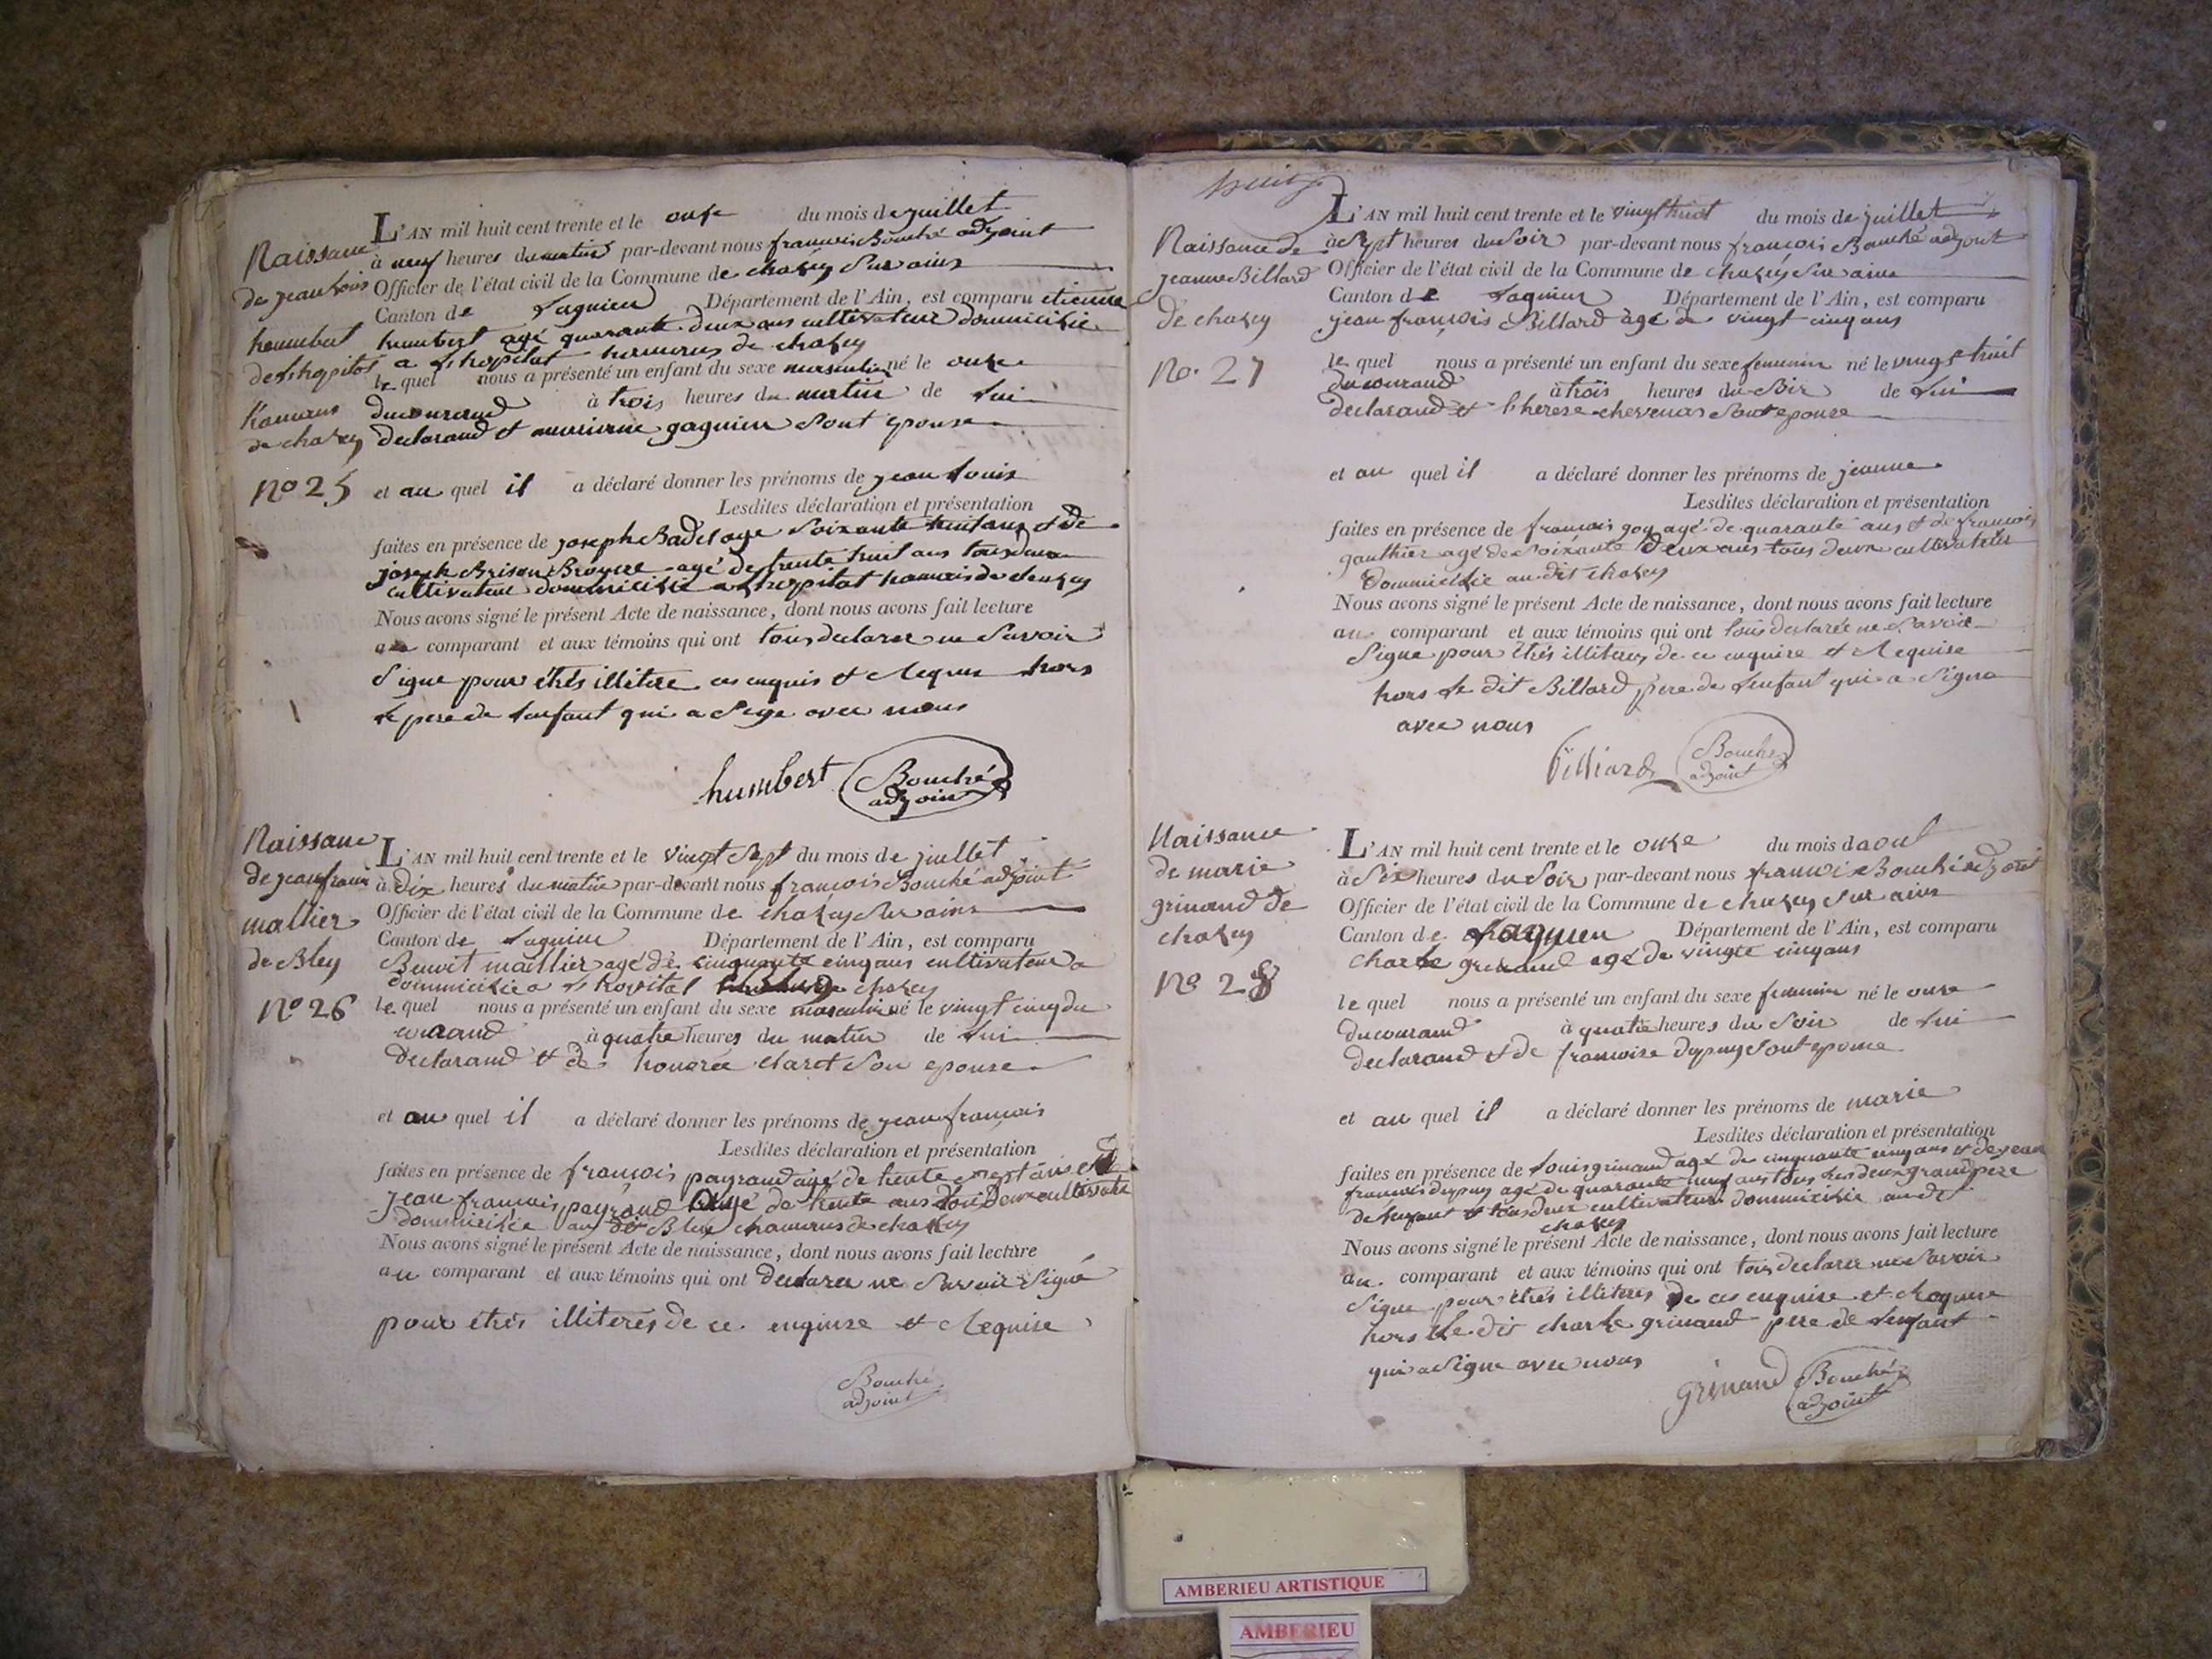 Naissance
de jean louis
houmbert
de Lhopital
hameaus
de chazey
No 25
L'AN mil huit cent trente et le onze du mois de juillet
à neuf heures du matin par-devant nous francois Bouché adjoint
Officier de l'état civil de la Commune de chazey Sur ains
Canton de Lagnieu Département de l'Ain, est comparu etienne
humbert agé quarante deux ans cultivateur domicilie
a Lhopital hameaus de chazey
le quel nous a présenté un enfant du sexe masculin né le onze
ducourand à trois heures du matin de Lui
declarand et gagnieu Sont epouse
et au quel il a déclaré donner les prénoms de jean Louis
Lesdites déclaration et présentation
faites en présence de joseph Badel age Soixante huit ans et de
joseph Brison Bruyere agé de trente huit ans tous deux
cultivateur domicilie a Lhopital hameaus de chazey
Nous avons signé le présent Acte de naissance, dont nous avons fait lecture
au comparant et aux témoins qui ont tous declarer ne Savoir
Signe pour êtrés illitere ces enquis et Requis hors
Le pere de Lenfant qui a Sige avec nous
humbert Bouché
adjoint
Naissance
de jean francois
mallier
de Bley
No 26
L'AN mil huit cent trente et le vingt Sept du mois de juillet
à Dix heures du matin par-devant nous francois Bouché adjoint
Officier de l'état civil de la Commune de chazey Sur ains
Canton de Lagnieu Département de l'Ain, est comparu
Benoit maillier agé de cinquante cinq ans cultivateur a
domicilie a Lhopital chazey
le quel nous a présenté un enfant du sexe masculin né le vingt cinq du
courand à quatre heures du matin de Lui
declarand et de honorée claret Son epouse
et au quel il a déclaré donner les prénoms de jean francois
Lesdites déclaration et présentation
faites en présence de francois payraud agé de trente sept ans et
jean francois payraud agé de trente ans tous Deux cultivate
domicilie au dit Bley hameaus de chazey
Nous avons signé le présent Acte de naissance, dont nous avons fait lecture
au comparant et aux témoins qui ont declarer ne Savoir Signé
pour êtrés illiterés de ce enquise et Requise
Bouché
adjoint
huit
Naissance de
jeanne Billard
de chazey
No. 27
L'AN mil huit cent trente et le vingt huit du mois de juillet
à Sept heures du Soir par-devant nous francois Bouché adjoint
Officier de l'état civil de la Commune de chazey Sur ains
Canton de Lagnieu Département de l'Ain, est comparu
jean françois Billard agé de vingt cinq ans
le quel nous a présenté un enfant du sexe feminin né le vingt huit
ducourand à trois heures du Soir de Lui
declarand et therese Sont epouse
et au quel il a déclaré donner les prénoms de jeanne
Lesdites déclaration et présentation
faites en présence de francois goy agé de quarante ans et de francois
gauthier agé de Soixante Deux ans tous deux cultivateur
Domicilie au dit chazey
Nous avons signé le présent Acte de naissance, dont nous avons fait lecture
au comparant et aux témoins qui ont tous declarée ne Savoir
Signe pour êtrés illiteres de ce enquire et Requise
hors Le dit Billard pere de Lenfant qui a Signe
avec nous
Billiard Bouché
adjoint
Naissance
de marie
grinand de
chazey
No 28
L'AN mil huit cent trente et le onze du mois daout
à Six heures du Soir par-devant nous francois Bouché adjoint
Officier de l'état civil de la Commune de chazey Sur ains
Canton de Lagnieu Département de l'Ain, est comparu
charle grinand agé de vingte cinq ans
le quel nous a présenté un enfant du sexe feminin né le onze
ducourand à quatre heures du Soir de Lui
declarand et de francoise dupuy Sont epouse
et au quel il a déclaré donner les prénoms de marie
Lesdites déclaration et présentation
faites en présence de Louis grinand agé de cinquante cinq ans et de jean
francois dupuy agé de quarante neuf ans tous Les deux grand pere
de Lenfant et tous deux cultivateurs domicilie au dit
chazey
Nous avons signé le présent Acte de naissance, dont nous avons fait lecture
au comparant et aux témoins qui ont tous declarer ne Savoir
Signe pour êtrés illiteres De ces enquise et Requise
hors Le dit charle grinand pere de Lenfant
qui a Signe avec nous
grinand Bouché
adjoint
AMBERIEU ARTISTIQUE
AMBERIEU